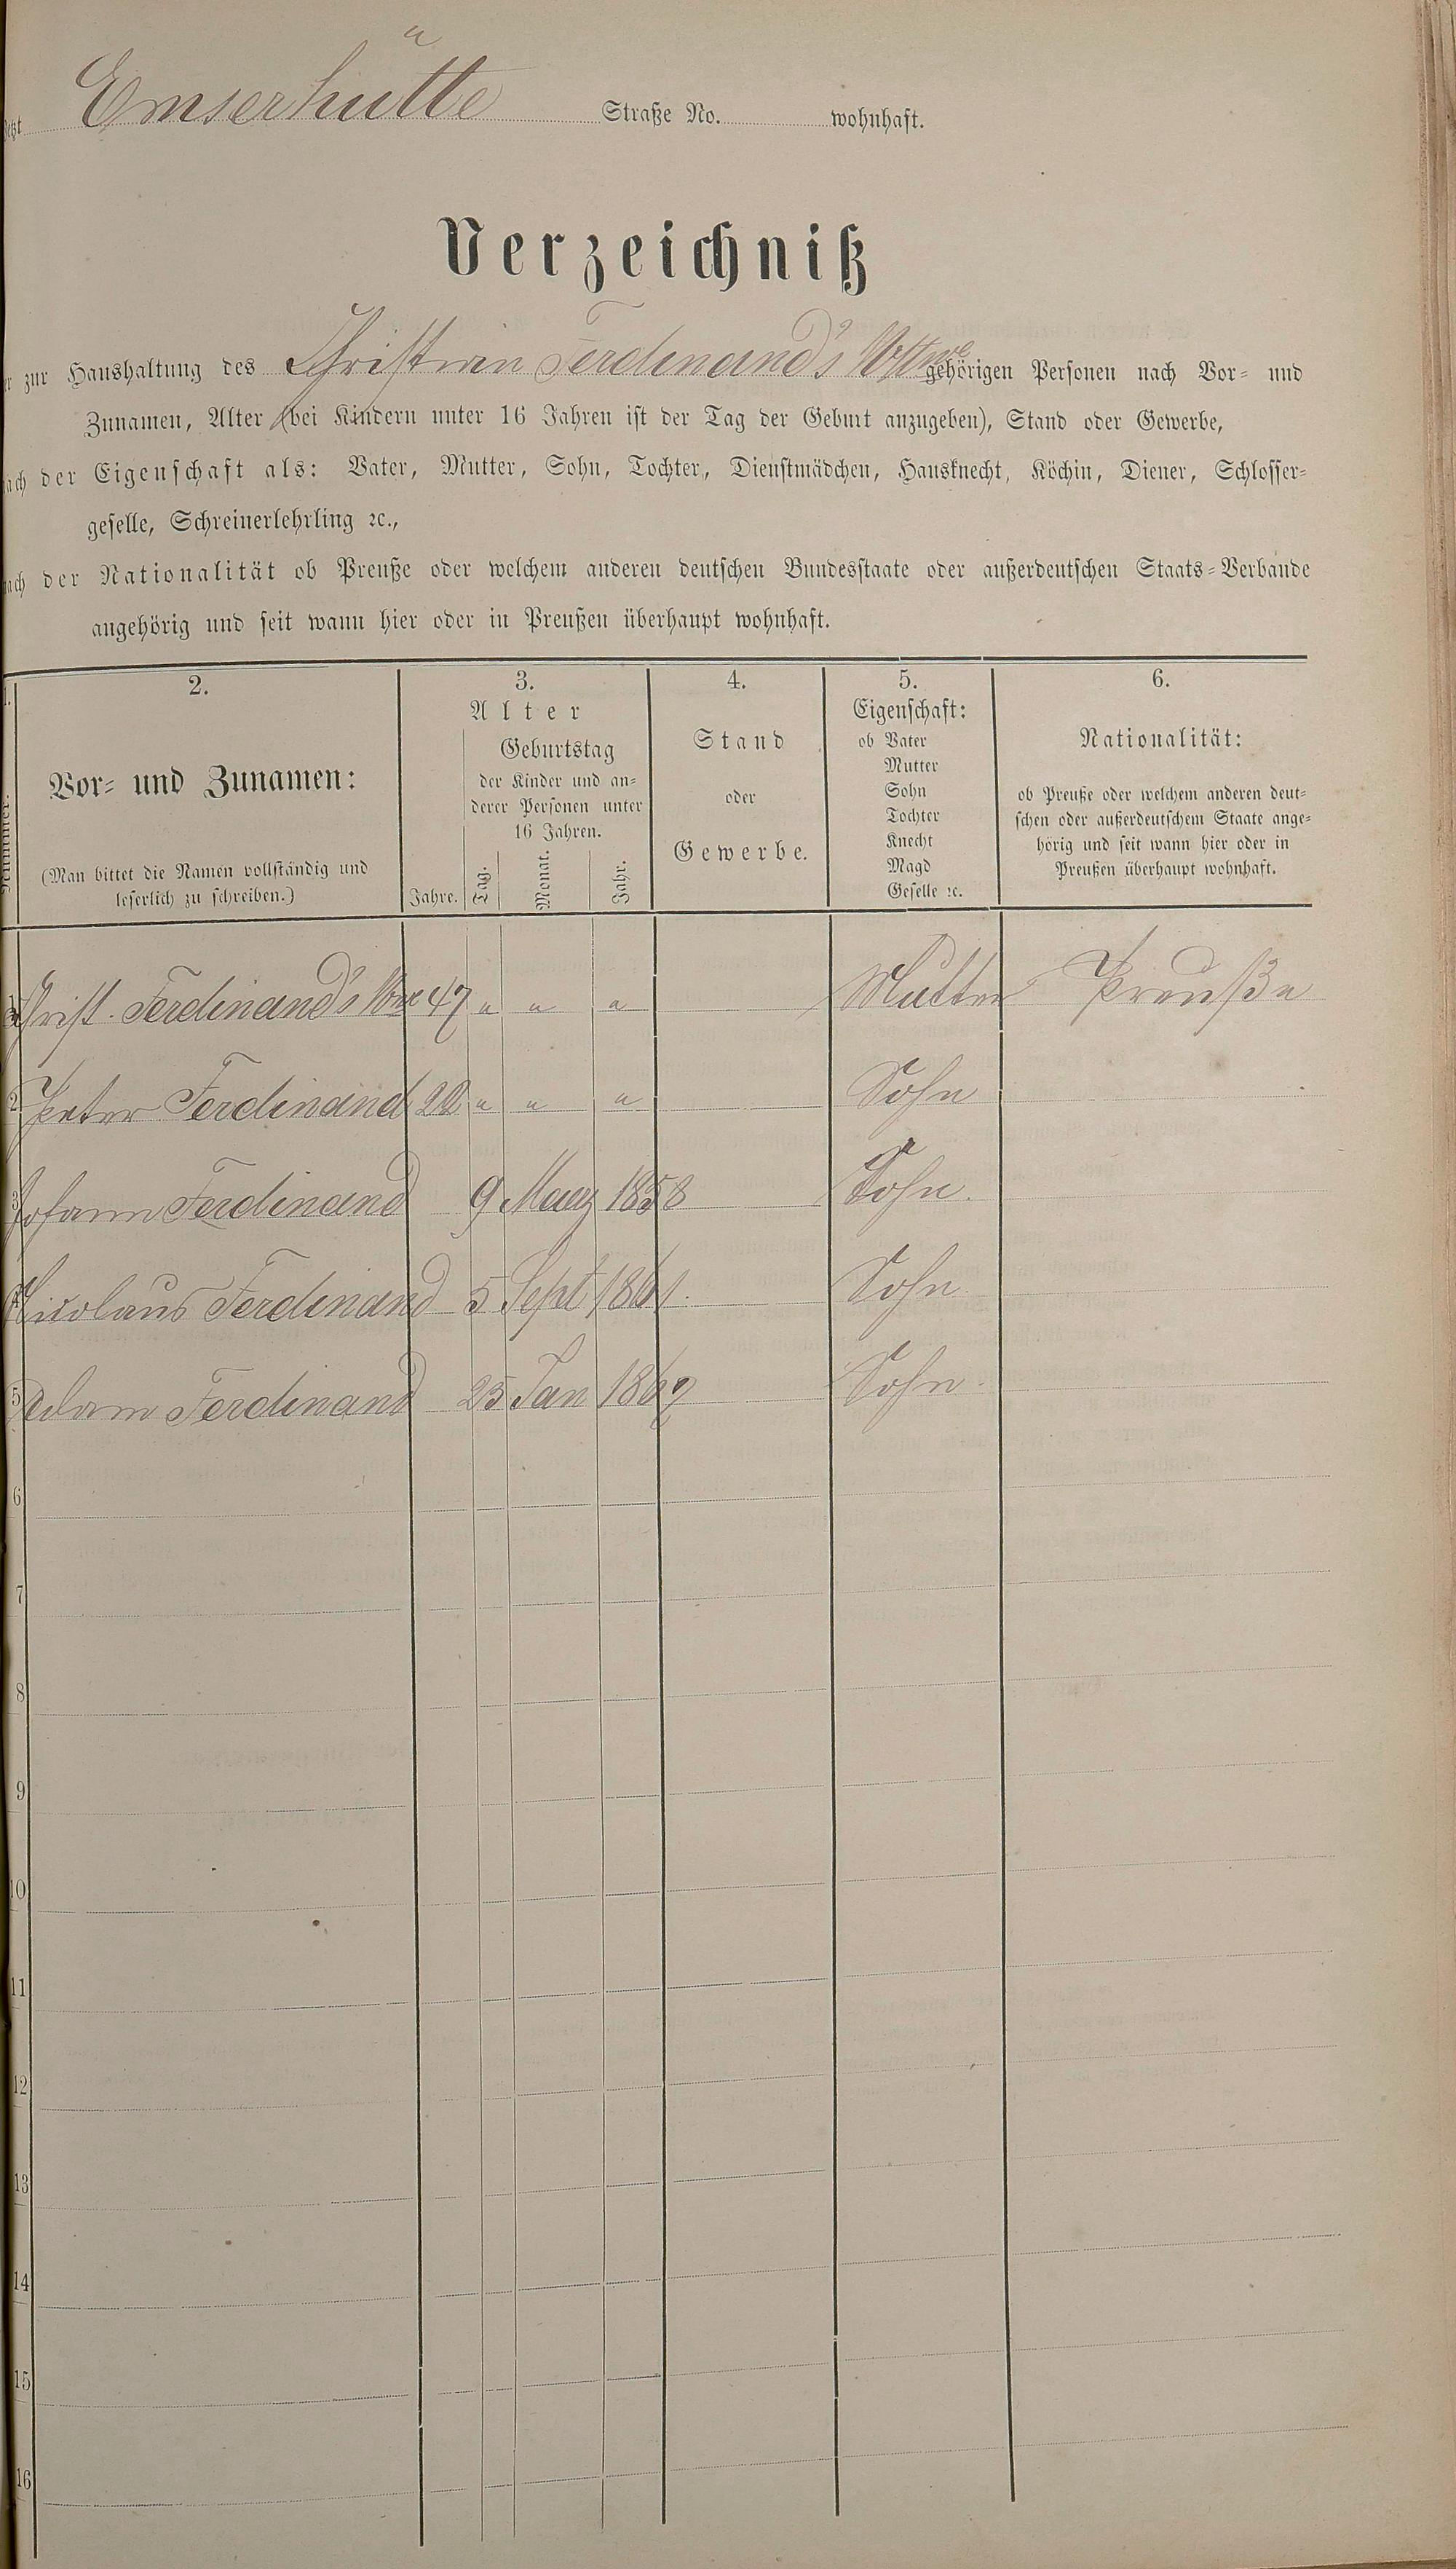 Emserhütte Straße No. wohnhaft.
Verzeichniß
zur Haushaltung des Christian Ferdinand's Wttwe gehörigen Personen nach Vor- und
Zunamen, Alter (bei Kindern unter 16 Jahren ist der Tag der Geburt anzugeben), Stand oder Gewerbe,
nach der Eigenschaft als: Vater, Mutter, Sohn, Tochter, Dienstmädchen, Hausknecht, Köchin, Diener, Schlosser-
geselle, Schreinerlehrling ꝛc.,
nach der Nationalität ob Preuße oder welchem anderen deutschen Bundesstaate oder außerdeutschen Staats-Verbande
angehörig und seit wann hier oder in Preußen überhaupt wohnhaft.
2. 3. 4. 5. 6.
Vor- und Zunamen:
(Man bittet die Namen vollständig und
leserlich zu schreiben.)
Alter
Geburtstag
der Kinder und an-
derer Personen unter
16 Jahren.
Jahre. Tag. Monat. Jahr.
Stand
oder
Gewerbe.
Eigenschaft:
ob Vater
Mutter
Sohn
Tochter
Knecht
Magd
Geselle ꝛc.
Nationalität:
ob Preuße oder welchem anderen deut-
schen oder außerdeutschem Staate ange-
hörig und seit wann hier oder in
Preußen überhaupt wohnhaft.
Christ. Ferdinand's Wwe 47 " " " Mutter Preuße
2 Peter Ferdinand 20 " " " Sohn
3 Johann Ferdinand 9 März 1858 Sohn.
Nicolaus Ferdinand 5 Sept 1861. Sohn
5 Adam Ferdinand 25 Jan 1869 Sohn.
6
7
8
9
10
11
12
13
14
15
16